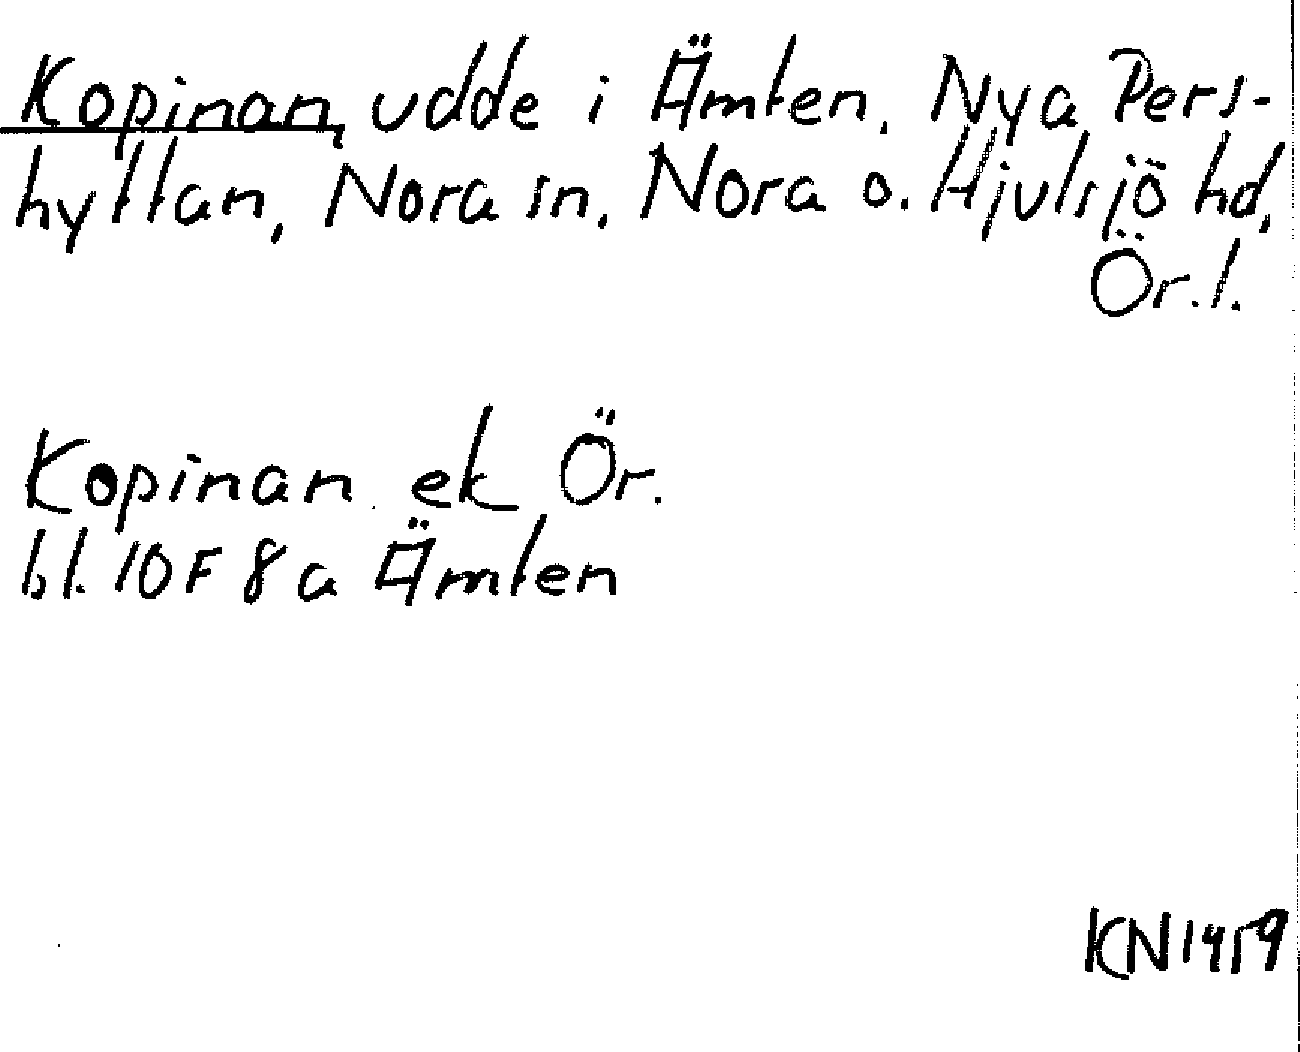 Kopinan, udde i Ämten, Nya Pers-
hyttan, Nora sn, Nora o. Hjulsjö hd,
Ör. l.
Kopinan ek Ör.
bl. 10F 8a Ämten
KN1459